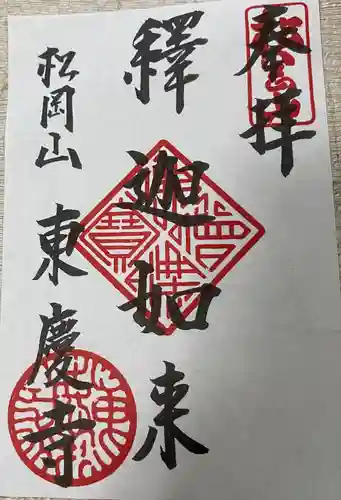 奉拝
釋迦如来
松岡山 東慶寺